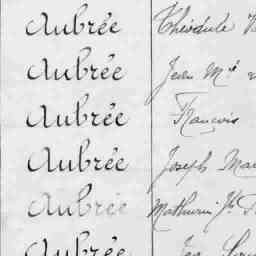 Aubrée Théodule
Aubrée Jean Me
Aubrée François
Aubrée Joseph
Aubrée Mathurin Je
Aubrée